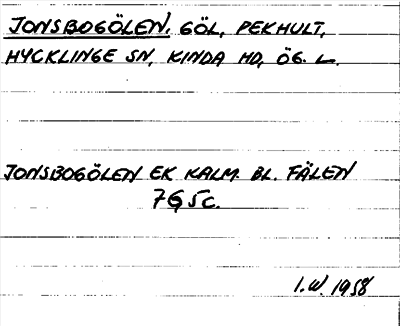 JONSBOGÖLEN. GÖL, PEKHULT,
HYCKLINGE SN, KINDA HD, ÖG. L.
JONSBOGÖLEN EK KALM. BL. FÄLEN
7G5c.
I.W. 1958